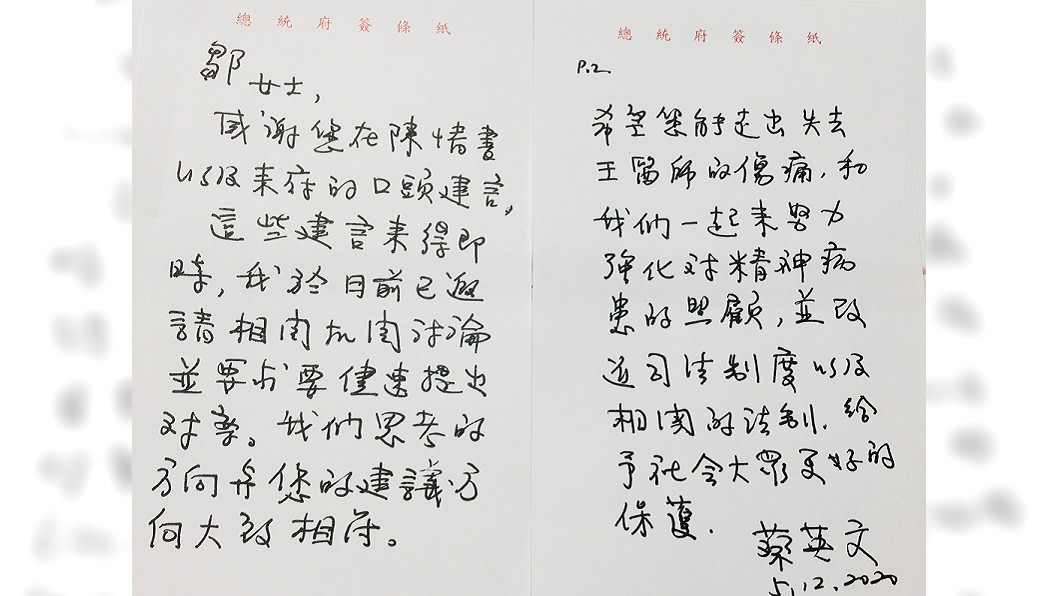 總統府簽條紙
鄒女士，
感謝您在陳情書
以及來府的口頭建言，
這些建言來得即
時，我於日前已邀
請相関机関討論
並要求要侭速提出
对案。我们思考的
方向与您的建議方
向大致相符。
總統府簽條紙
P.2.
希望您能走出失去
王醫師的傷痛，和
我们一起來努力
強化对精神病
患的照顧，並改
造司法制度以及
相関的法制，給
予社会大眾更好的
保護.
蔡英文
5.12.2020